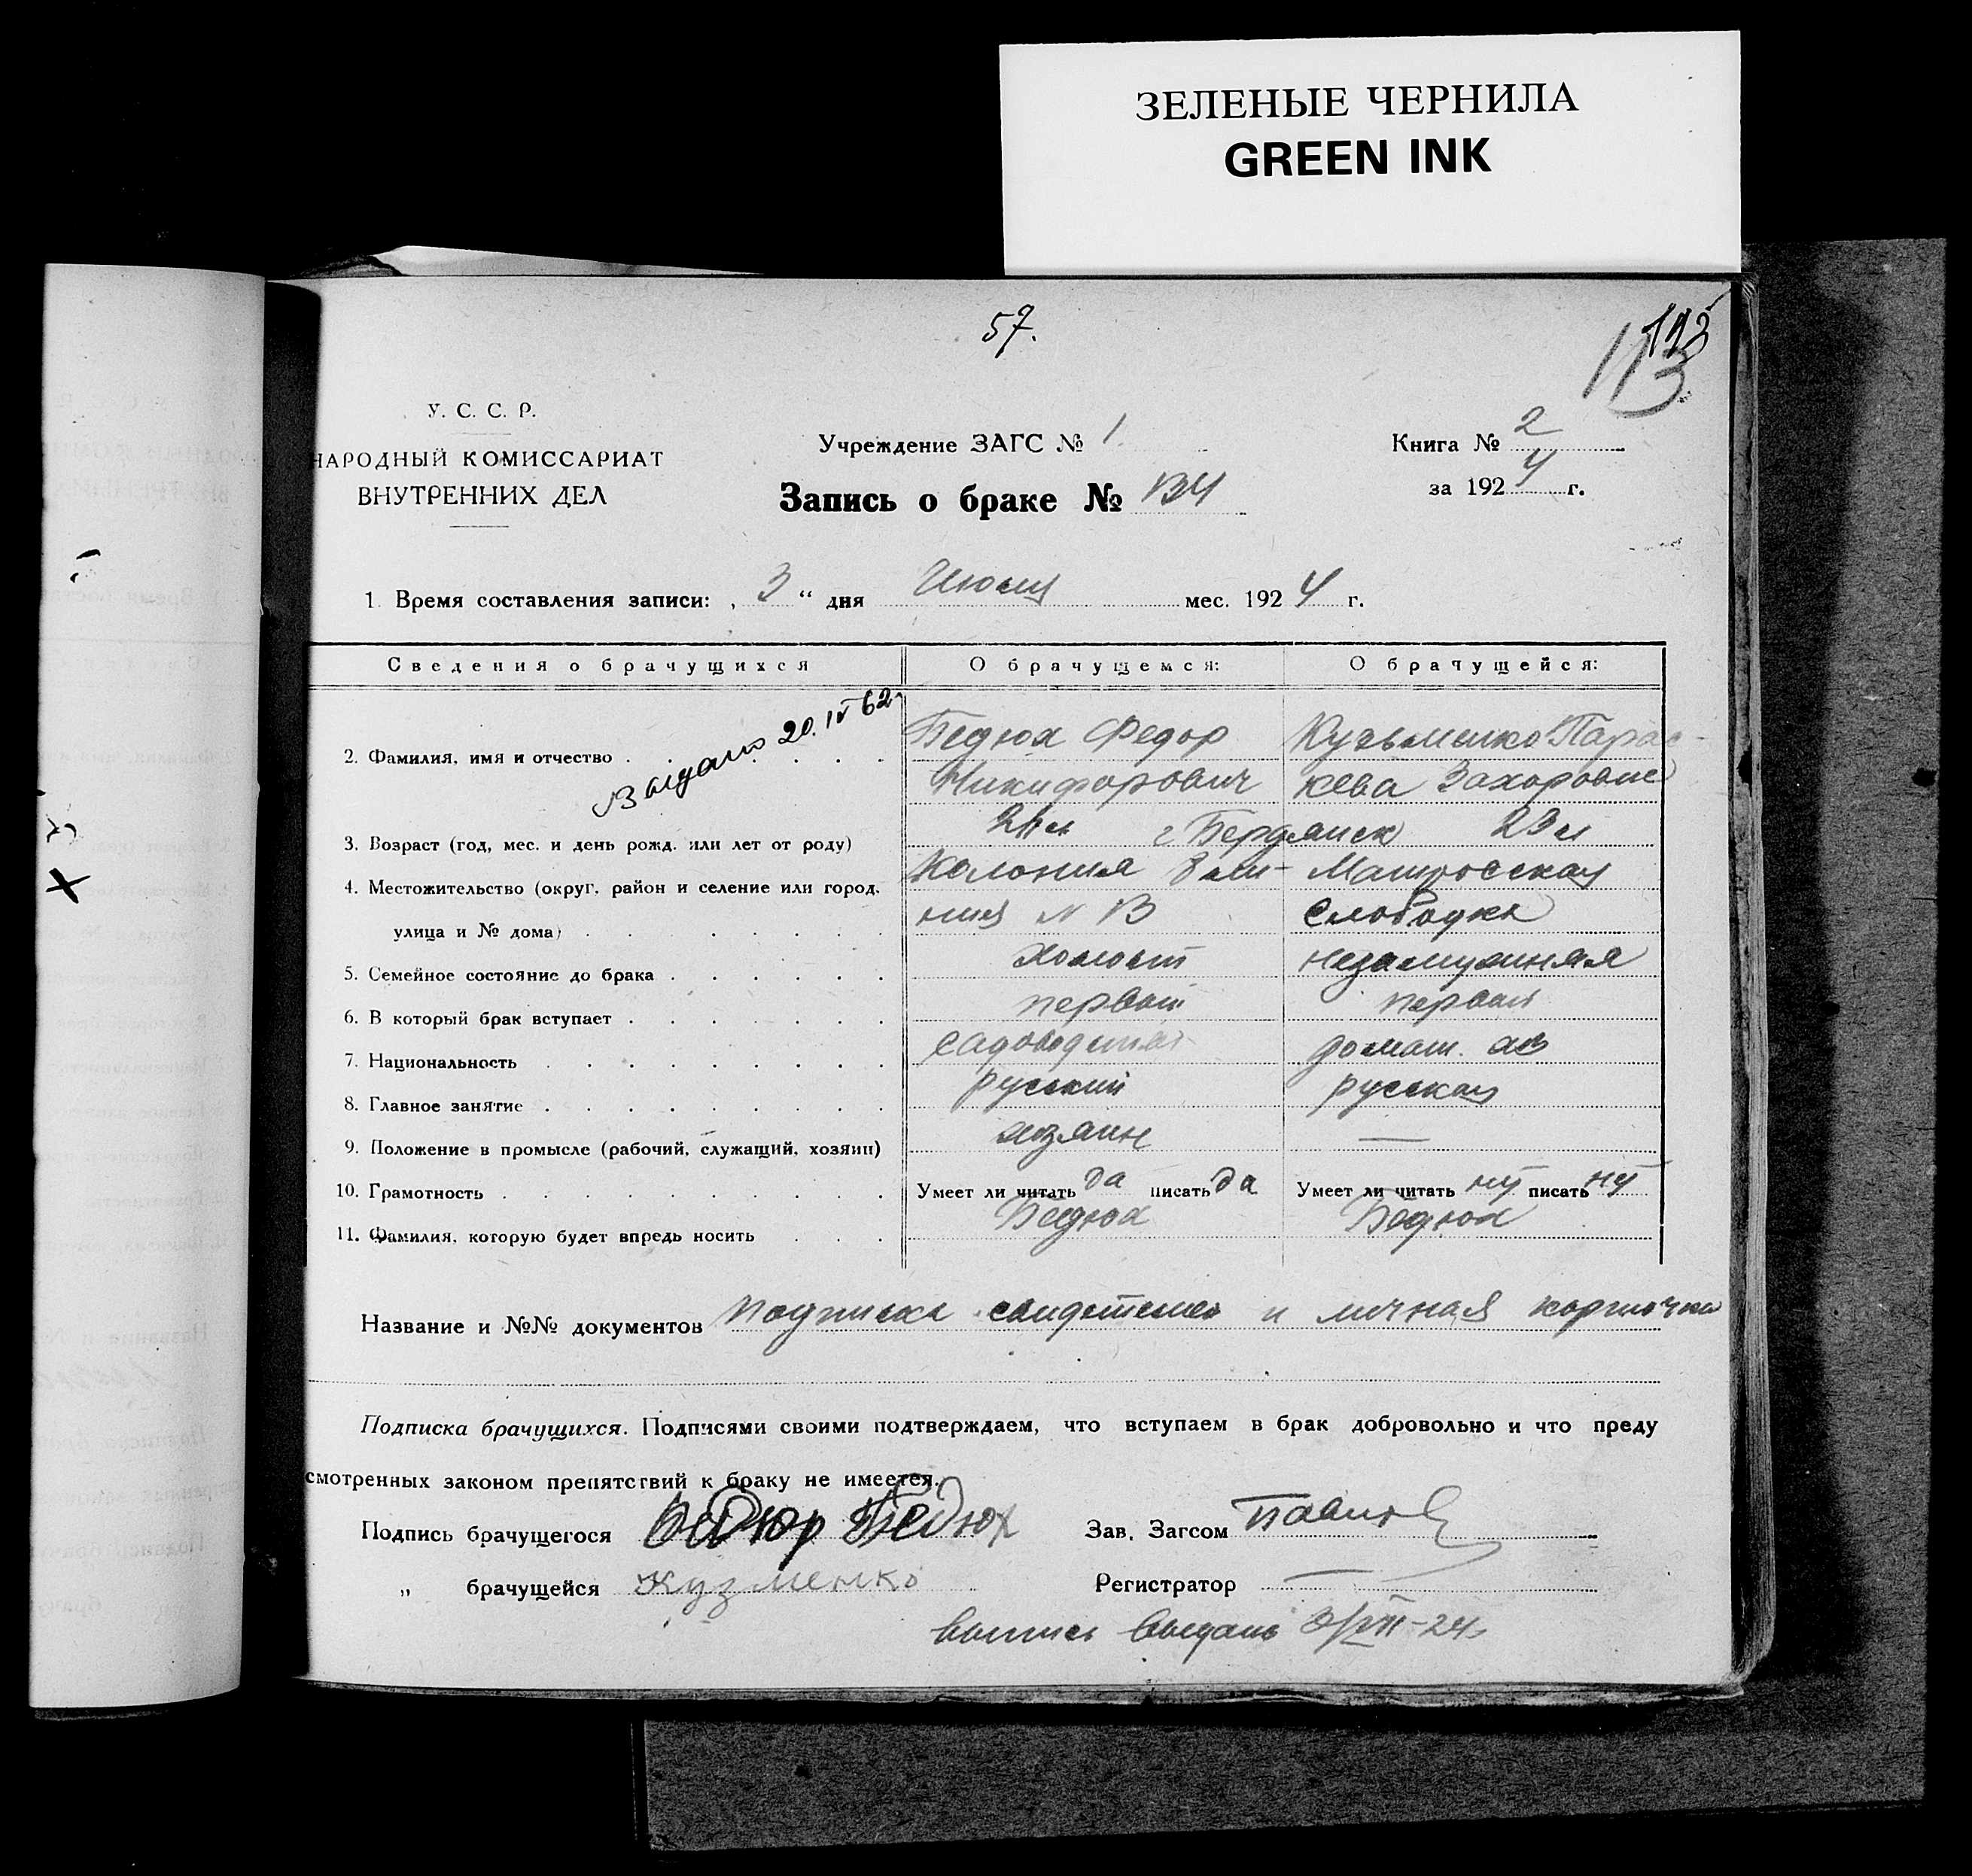 ЗЕЛЕНЫЕ ЧЕРНИЛА
GREEN INK
57.
113
У. С. С. Р.
НАРОДНЫЙ КОМИССАРИАТ
ВНУТРЕННИХ ДЕЛ
Учреждение ЗАГС № 1
Запись о браке № 134
Книга № 2
за 1924 г.
1. Время составления записи: „ 3 “ дня Июля мес. 1924 г.
Сведения о брачущихся О брачущемся: О брачущейся:
Выдано 20.IV 62
2. Фамилия, имя и отчество Бедюх Федор Кузьменко Парас-
Никифорович кева Захаровне
3. Возраст (год, мес. и день рожд. или лет от роду) г Бердянск 23 л
4. Местожительство (округ, район и селение или город, Колония Матросская
улица и № дома) слободка
5. Семейное состояние до брака холост незамужняя
6. В который брак вступает первый первый
7. Национальность домаш. хоз
8. Главное занятие русский русская
9. Положение в промысле (рабочий, служащий, хозяин) хозяин —
10. Грамотность Умеет ли читать да писать да Умеет ли читать нет писать нет
11. Фамилия, которую будет впредь носить Бедюх Бедюх
Название и №№ документов подписка свидетелей и личная карточка
Подписка брачущихся. Подписями своими подтверждаем, что вступаем в брак добровольно и что преду
смотренных законом препятствий к браку не имеется.
Подпись брачущегося Бедюх Зав. Загсом Павлов
„ брачущейся Кузменко Регистратор —
выпись выдана 3/VII-24